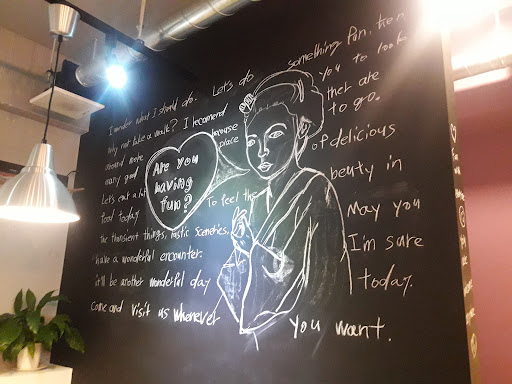 I wonder what I should do. Let's do something fun, then
Why not take a walk? I recomend you to look
around more because that are
many good place to go.
Are you
having
fun?
Let's eat a lot of delicious
food today To feel the beuty in
the transient things, rustic sceneries. May you
have a wonderful encounter. I'm sure
it'll be another wonderful day today.
Come and visit us whenever you want.